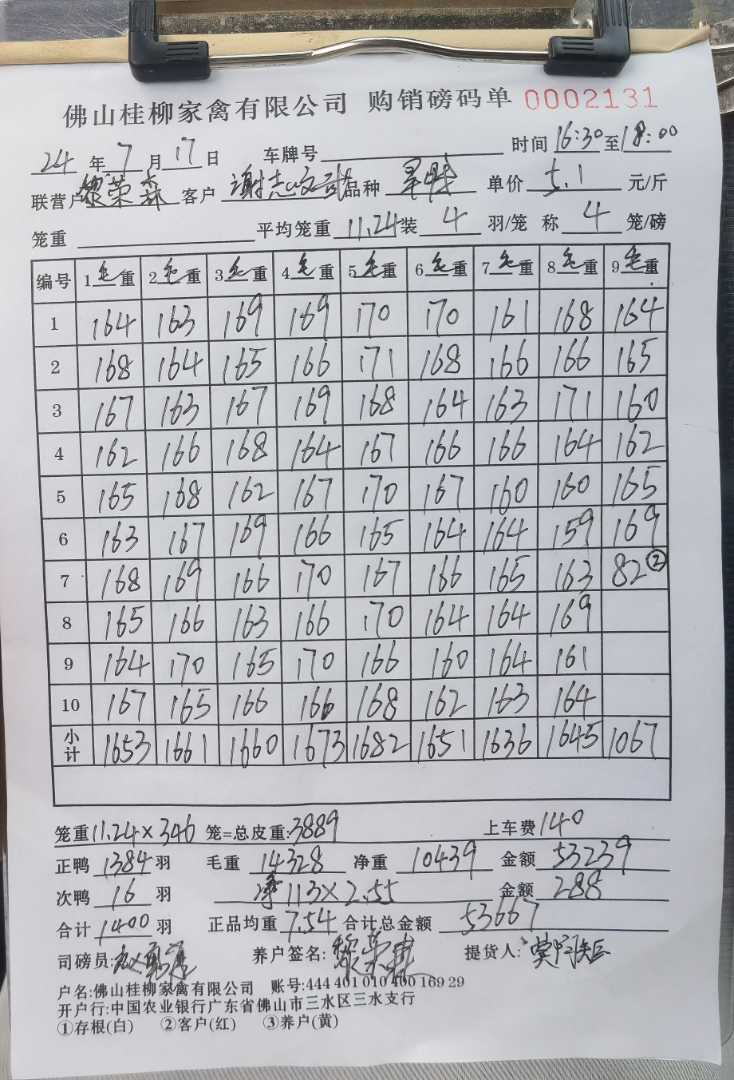 佛山桂柳家禽有限公司 购销磅码单 0002131
24 年 7 月 17 日 车牌号 时间 16:30 至 18:00
联营户 黎荣森 客户 谢志 品种 单价 5.1 元/斤
笼重 平均笼重 11.24 装 4 羽/笼 称 4 笼/磅
编号 1毛重 2毛重 3毛重 4毛重 5毛重 6毛重 7毛重 8毛重 9毛重
1 164 163 169 169 170 170 161 168 164
2 168 164 165 166 171 168 166 166 165
3 167 163 167 169 168 164 163 171 160
4 162 166 168 164 167 166 166 164 162
5 165 168 162 167 170 167 160 160 165
6 163 167 169 166 165 164 164 159 169
7 168 169 166 170 167 166 165 163 82②
8 165 166 163 166 170 164 164 169
9 164 170 165 170 166 160 164 161
10 167 165 166 166 168 162 163 164
小计 1653 1661 1660 1673 1682 1651 1636 1645 1067
笼重 11.24×346 笼=总皮重: 3889 上车费 140
正鸭 1384 羽 毛重 14328 净重 10439 金额 53239
次鸭 16 羽 净113×2.55 金额 288
合计 1400 羽 正品均重 7.54 合计总金额 53667
司磅员: 养户签名: 黎荣森 提货人:
户名:佛山桂柳家禽有限公司 账号:444 401 010 400 169 29
开户行:中国农业银行广东省佛山市三水区三水支行
①存根(白) ②客户(红) ③养户(黄)